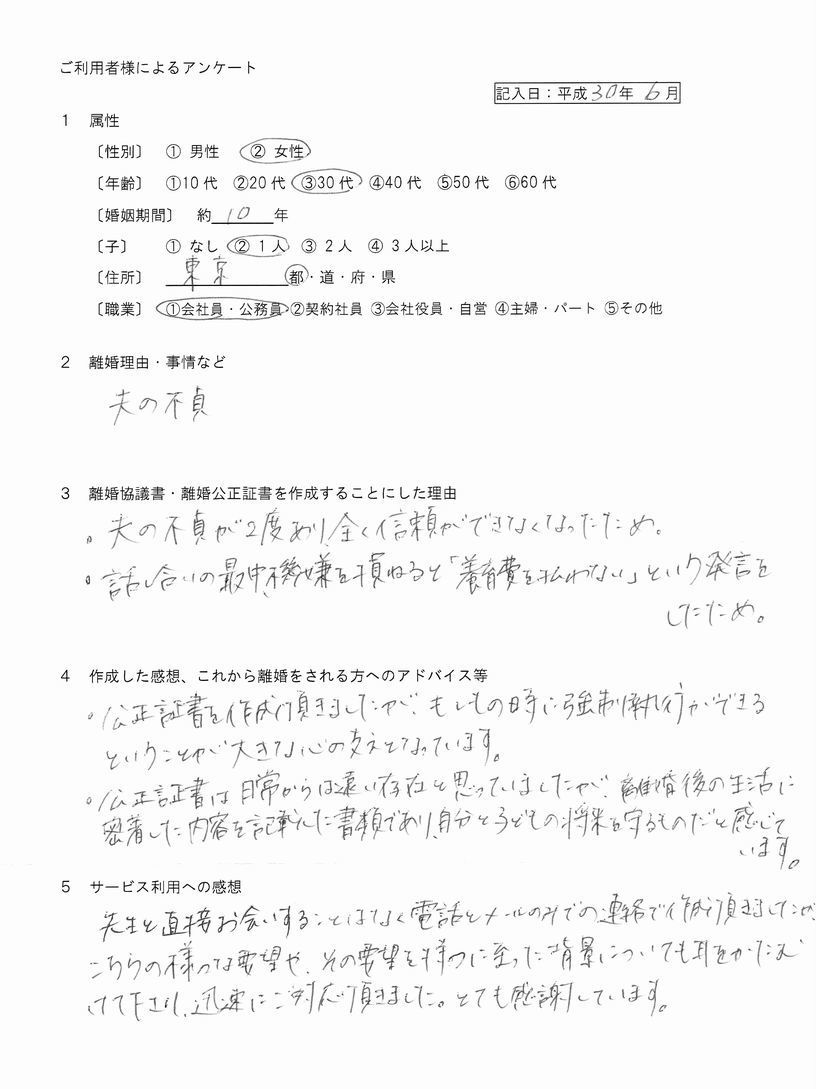 ご利用者様によるアンケート
記入日：平成30年 6月
1 属性
〔性別〕 ① 男性 ② 女性
〔年齢〕 ①10代 ②20代 ③30代 ④40代 ⑤50代 ⑥60代
〔婚姻期間〕 約 10 年
〔子〕 ① なし ② 1人 ③ 2人 ④ 3人以上
〔住所〕 東京 都・道・府・県
〔職業〕 ①会社員・公務員 ②契約社員 ③会社役員・自営 ④主婦・パート ⑤その他
2 離婚理由・事情など
夫の不貞
3 離婚協議書・離婚公正証書を作成することにした理由
。夫の不貞が2度あり、全く信頼ができなくなったため。
。話し合いの最中、機嫌を損ねると「養育費を払わない」という発言を
したため。
4 作成した感想、これから離婚をされる方へのアドバイス等
。公正証書を作成頂きましたが、もしもの時に強制執行ができる
ということが大きな心の支えとなっています。
。公正証書は日常からは遠い存在と思っていましたが、離婚後の生活に
密着した内容を記載した書類であり、自分と子どもの将来を守るものだと感じて
います。
5 サービス利用への感想
先生と直接お会いすることはなく電話とメールのみでの連絡で作成頂きましたが
こちらの様々な要望や、その要望を持つに至った背景についても耳をかたむ
けて下さり、迅速にご対応頂きました。とても感謝しています。